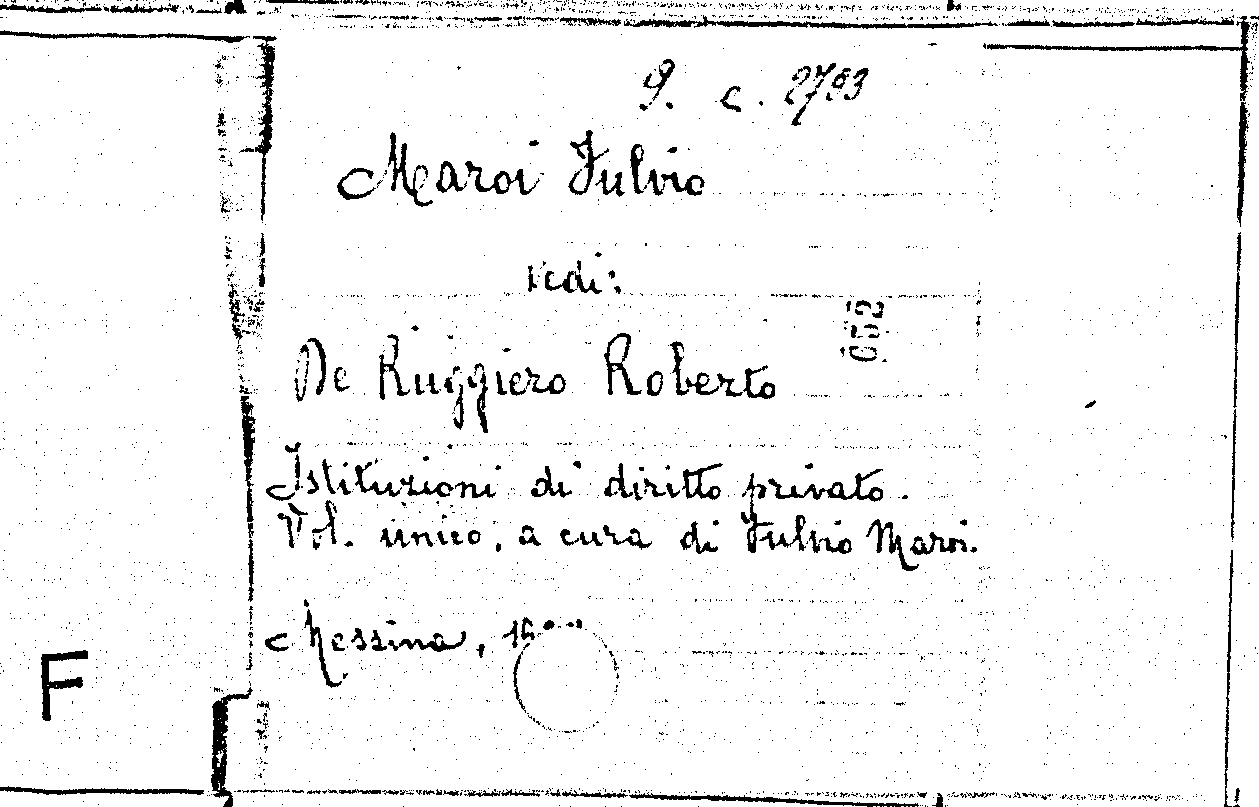 9. c. 2793
Maroi Fulvio
Vedi:
052
De Ruggiero Roberto
Istituzioni di diritto privato.
Vol. unico, a cura di Fulvio Maroi.
Messina,
F